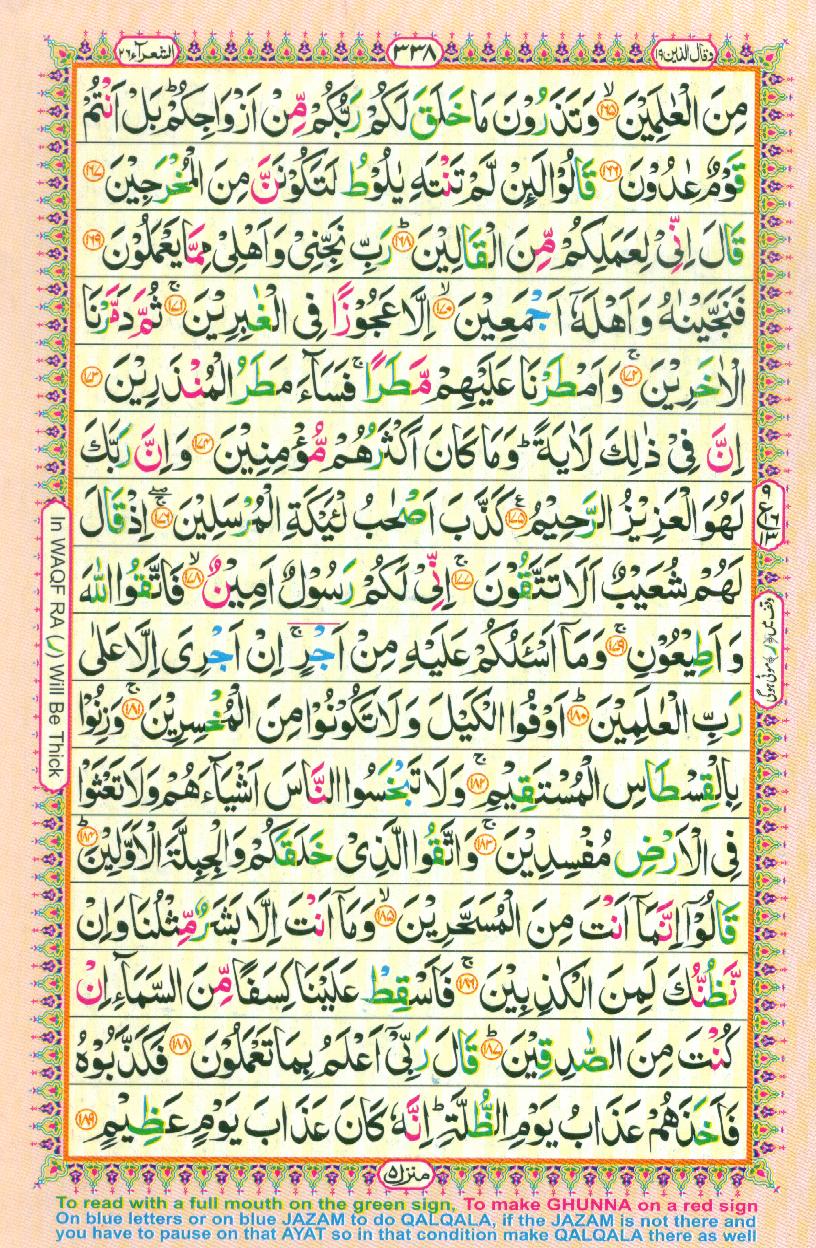 وقال الذين ١٩
٣٣٨
الشعرآء ٢٦
مِنَ الْعٰلَمِيْنَ ۙ﴿۱۶۵﴾ وَتَذَرُوْنَ مَا خَلَقَ لَكُمْ رَبُّكُمْ مِّنْ اَزْوَاجِكُمْ ؕ بَلْ اَنْتُمْ
قَوْمٌ عٰدُوْنَ ﴿۱۶۶﴾ قَالُوْا لَىِٕنْ لَّمْ تَنْتَهِ يٰلُوْطُ لَتَكُوْنَنَّ مِنَ الْمُخْرَجِيْنَ ﴿۱۶۷﴾
قَالَ اِنِّىْ لِعَمَلِكُمْ مِّنَ الْقَالِيْنَ ؕ﴿۱۶۸﴾ رَبِّ نَجِّنِىْ وَاَهْلِىْ مِمَّا يَعْمَلُوْنَ ﴿۱۶۹﴾
فَنَجَّيْنٰهُ وَاَهْلَهٗۤ اَجْمَعِيْنَ ۙ﴿۱۷۰﴾ اِلَّا عَجُوْزًا فِى الْغٰبِرِيْنَ ۚ﴿۱۷۱﴾ ثُمَّ دَمَّرْنَا
الْاٰخَرِيْنَ ۚ﴿۱۷۲﴾ وَاَمْطَرْنَا عَلَيْهِمْ مَّطَرًا ۚ فَسَآءَ مَطَرُ الْمُنْذَرِيْنَ ﴿۱۷۳﴾
اِنَّ فِىْ ذٰلِكَ لَاٰيَةً ؕ وَمَا كَانَ اَكْثَرُهُمْ مُّؤْمِنِيْنَ ﴿۱۷۴﴾ وَاِنَّ رَبَّكَ
لَهُوَ الْعَزِيْزُ الرَّحِيْمُ ۠﴿۱۷۵﴾ كَذَّبَ اَصْحٰبُ لْــَٔيْكَةِ الْمُرْسَلِيْنَ ۚۖ﴿۱۷۶﴾ اِذْ قَالَ
لَهُمْ شُعَيْبٌ اَلَا تَتَّقُوْنَ ۚ﴿۱۷۷﴾ اِنِّىْ لَكُمْ رَسُوْلٌ اَمِيْنٌ ۙ﴿۱۷۸﴾ فَاتَّقُوا اللّٰهَ
وَاَطِيْعُوْنِ ۚ﴿۱۷۹﴾ وَمَاۤ اَسْـَٔلُكُمْ عَلَيْهِ مِنْ اَجْرٍ ۚ اِنْ اَجْرِىَ اِلَّا عَلٰى
رَبِّ الْعٰلَمِيْنَ ؕ﴿۱۸۰﴾ اَوْفُوا الْكَيْلَ وَلَا تَكُوْنُوْا مِنَ الْمُخْسِرِيْنَ ۚ﴿۱۸۱﴾ وَزِنُوْا
بِالْقِسْطَاسِ الْمُسْتَقِيْمِ ۚ﴿۱۸۲﴾ وَلَا تَبْخَسُوا النَّاسَ اَشْيَآءَهُمْ وَلَا تَعْثَوْا
فِى الْاَرْضِ مُفْسِدِيْنَ ۚ﴿۱۸۳﴾ وَاتَّقُوا الَّذِىْ خَلَقَكُمْ وَالْجِبِلَّةَ الْاَوَّلِيْنَ ؕ﴿۱۸۴﴾
قَالُوْۤا اِنَّمَاۤ اَنْتَ مِنَ الْمُسَحَّرِيْنَ ۙ﴿۱۸۵﴾ وَمَاۤ اَنْتَ اِلَّا بَشَرٌ مِّثْلُنَا وَاِنْ
نَّظُنُّكَ لَمِنَ الْكٰذِبِيْنَ ۚ﴿۱۸۶﴾ فَاَسْقِطْ عَلَيْنَا كِسَفًا مِّنَ السَّمَآءِ اِنْ
كُنْتَ مِنَ الصّٰدِقِيْنَ ؕ﴿۱۸۷﴾ قَالَ رَبِّىْۤ اَعْلَمُ بِمَا تَعْمَلُوْنَ ﴿۱۸۸﴾ فَكَذَّبُوْهُ
فَاَخَذَهُمْ عَذَابُ يَوْمِ الظُّلَّةِ ؕ اِنَّهٗ كَانَ عَذَابَ يَوْمٍ عَظِيْمٍ ﴿۱۸۹﴾
منزل ۵
In WAQF RA (ر) Will Be Thick
To read with a full mouth on the green sign, To make GHUNNA on a red sign
On blue letters or on blue JAZAM to do QALQALA, if the JAZAM is not there and
you have to pause on that AYAT so in that condition make QALQALA there as well